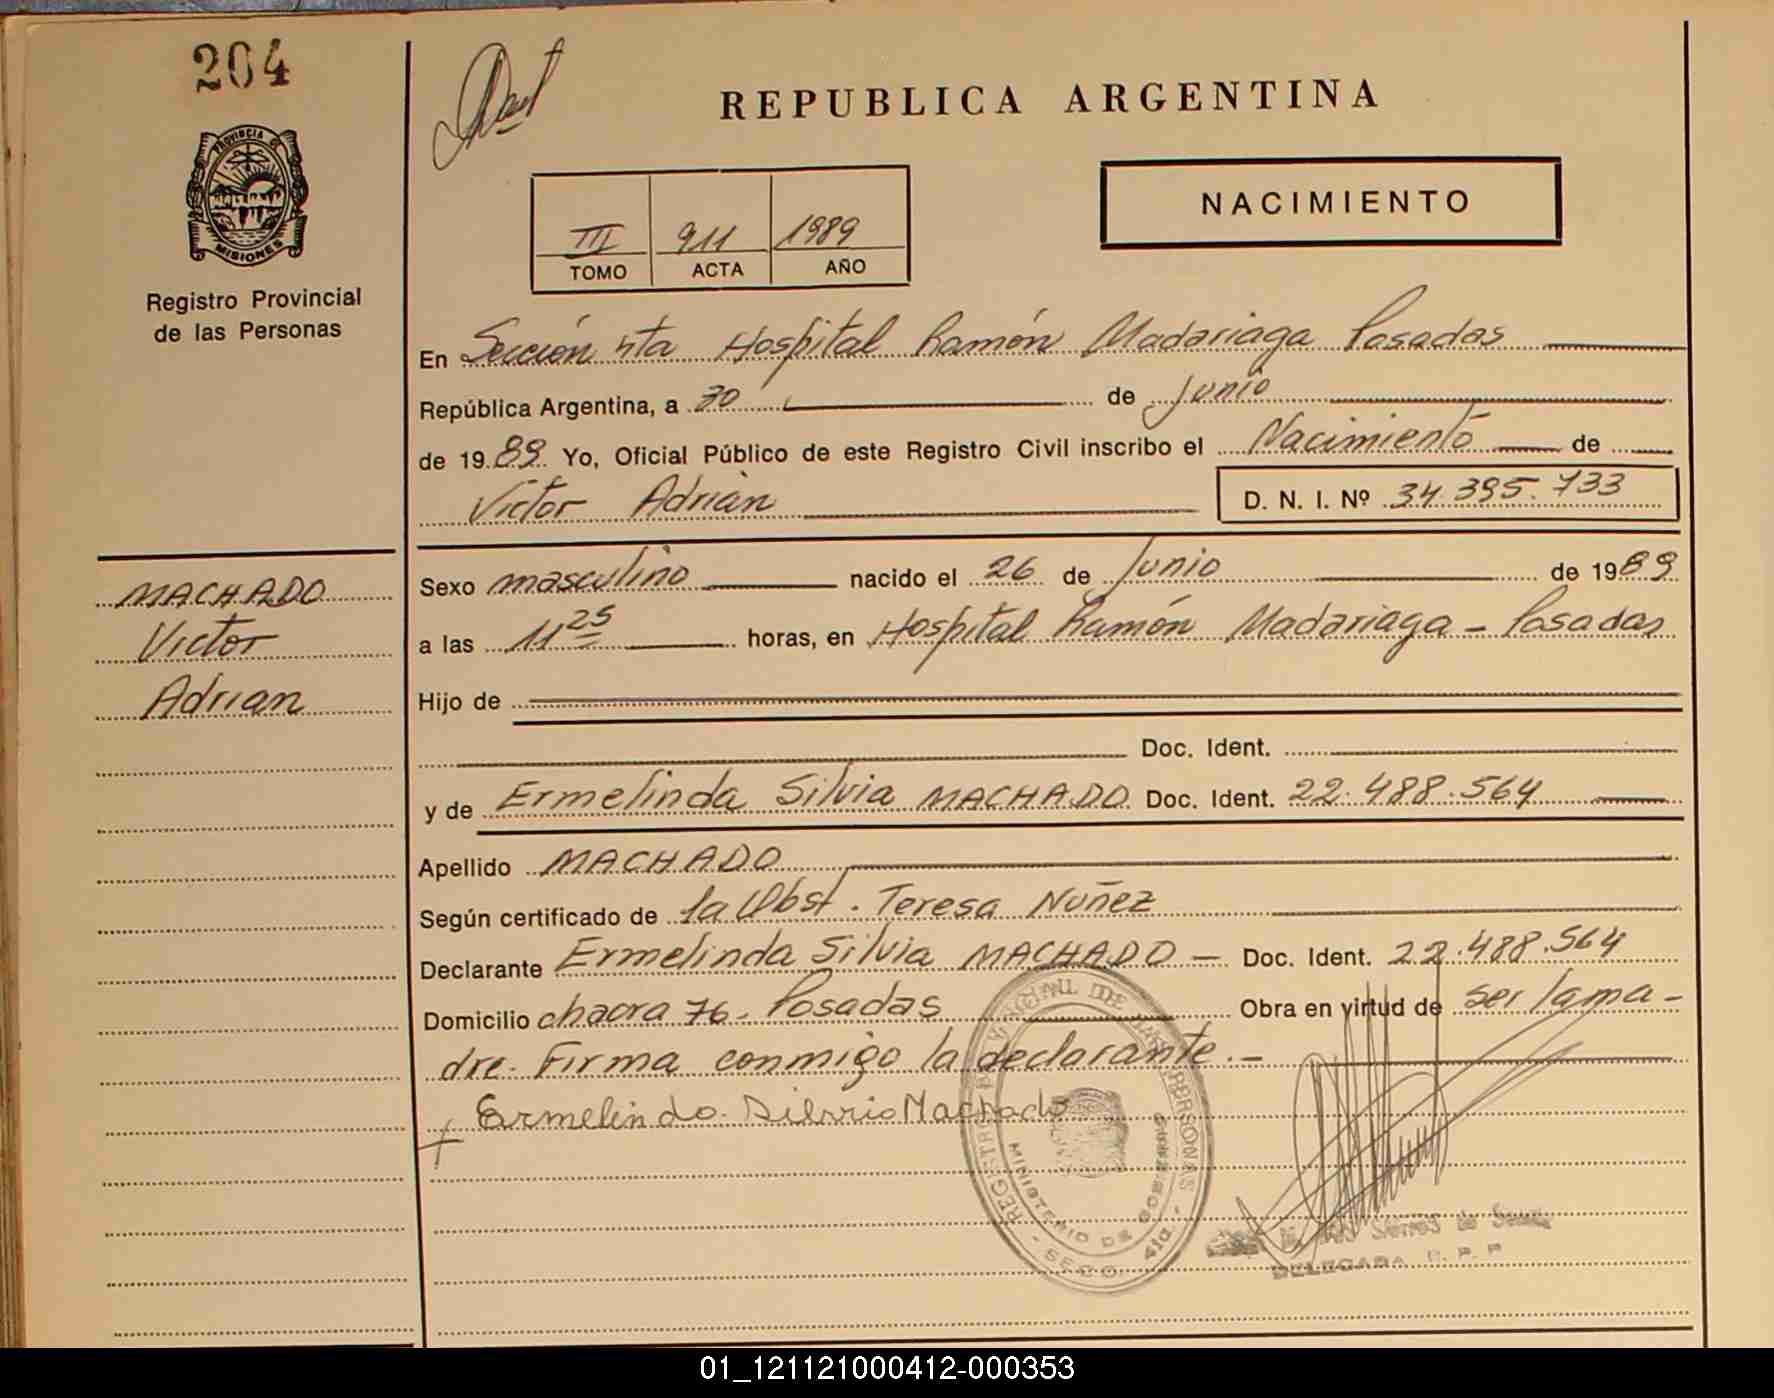 204
PROVINCIA DE
MISIONES
Registro Provincial
de las Personas
REPUBLICA ARGENTINA
NACIMIENTO
III 911 1989
TOMO ACTA AÑO
En Sección 4ta Hospital Ramón Madariaga Posadas
República Argentina, a 30 de Junio
de 1989 Yo, Oficial Público de este Registro Civil inscribo el Nacimiento de
Victor Adrián D. N. I. Nº 34.395.733
MACHADO
Victor
Adrian
Sexo masculino nacido el 26 de Junio de 1989
a las 11 25 horas, en Hospital Ramón Madariaga - Posadas
Hijo de
Doc. Ident.
y de Ermelinda Silvia MACHADO Doc. Ident. 22.488.564
Apellido MACHADO
Según certificado de la Obst. Teresa Nuñez
Declarante Ermelinda Silvia MACHADO - Doc. Ident. 22.488.564
Domicilio chacra 76 - Posadas Obra en virtud de ser la ma-
dre. Firma conmigo la declarante.-
Ermelinda Silvia Machado
REGISTRO PROVINCIAL DE LAS PERSONAS
MINISTERIO DE GOBIERNO
- SECC. 4ta -
DELEGADA R. P. P.
01_121121000412-000353